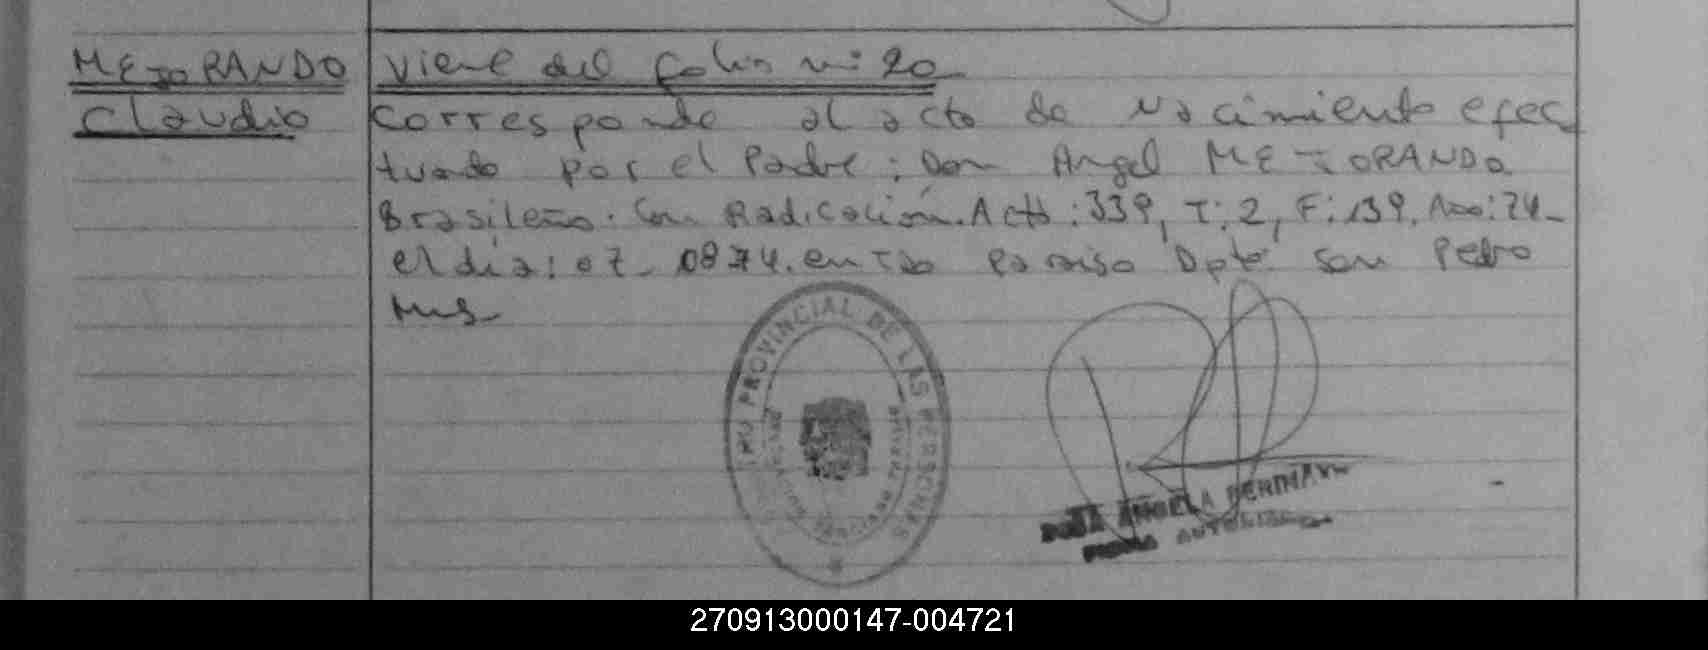 MEJORANDO
Claudio
Viene del folio nº: 20
Corresponde al acto de Nacimiento efec
tuado por el Padre: Don Angel MEJORANDO
Brasileño. Con Radicación. Acta: 339, T: 2, F: 139. Año: 74-
el dia: 07-0874. en Paraiso Dpto San Pedro
Mns-
PROVINCIAL DE LAS PERSONAS
ANGELA
270913000147-004721